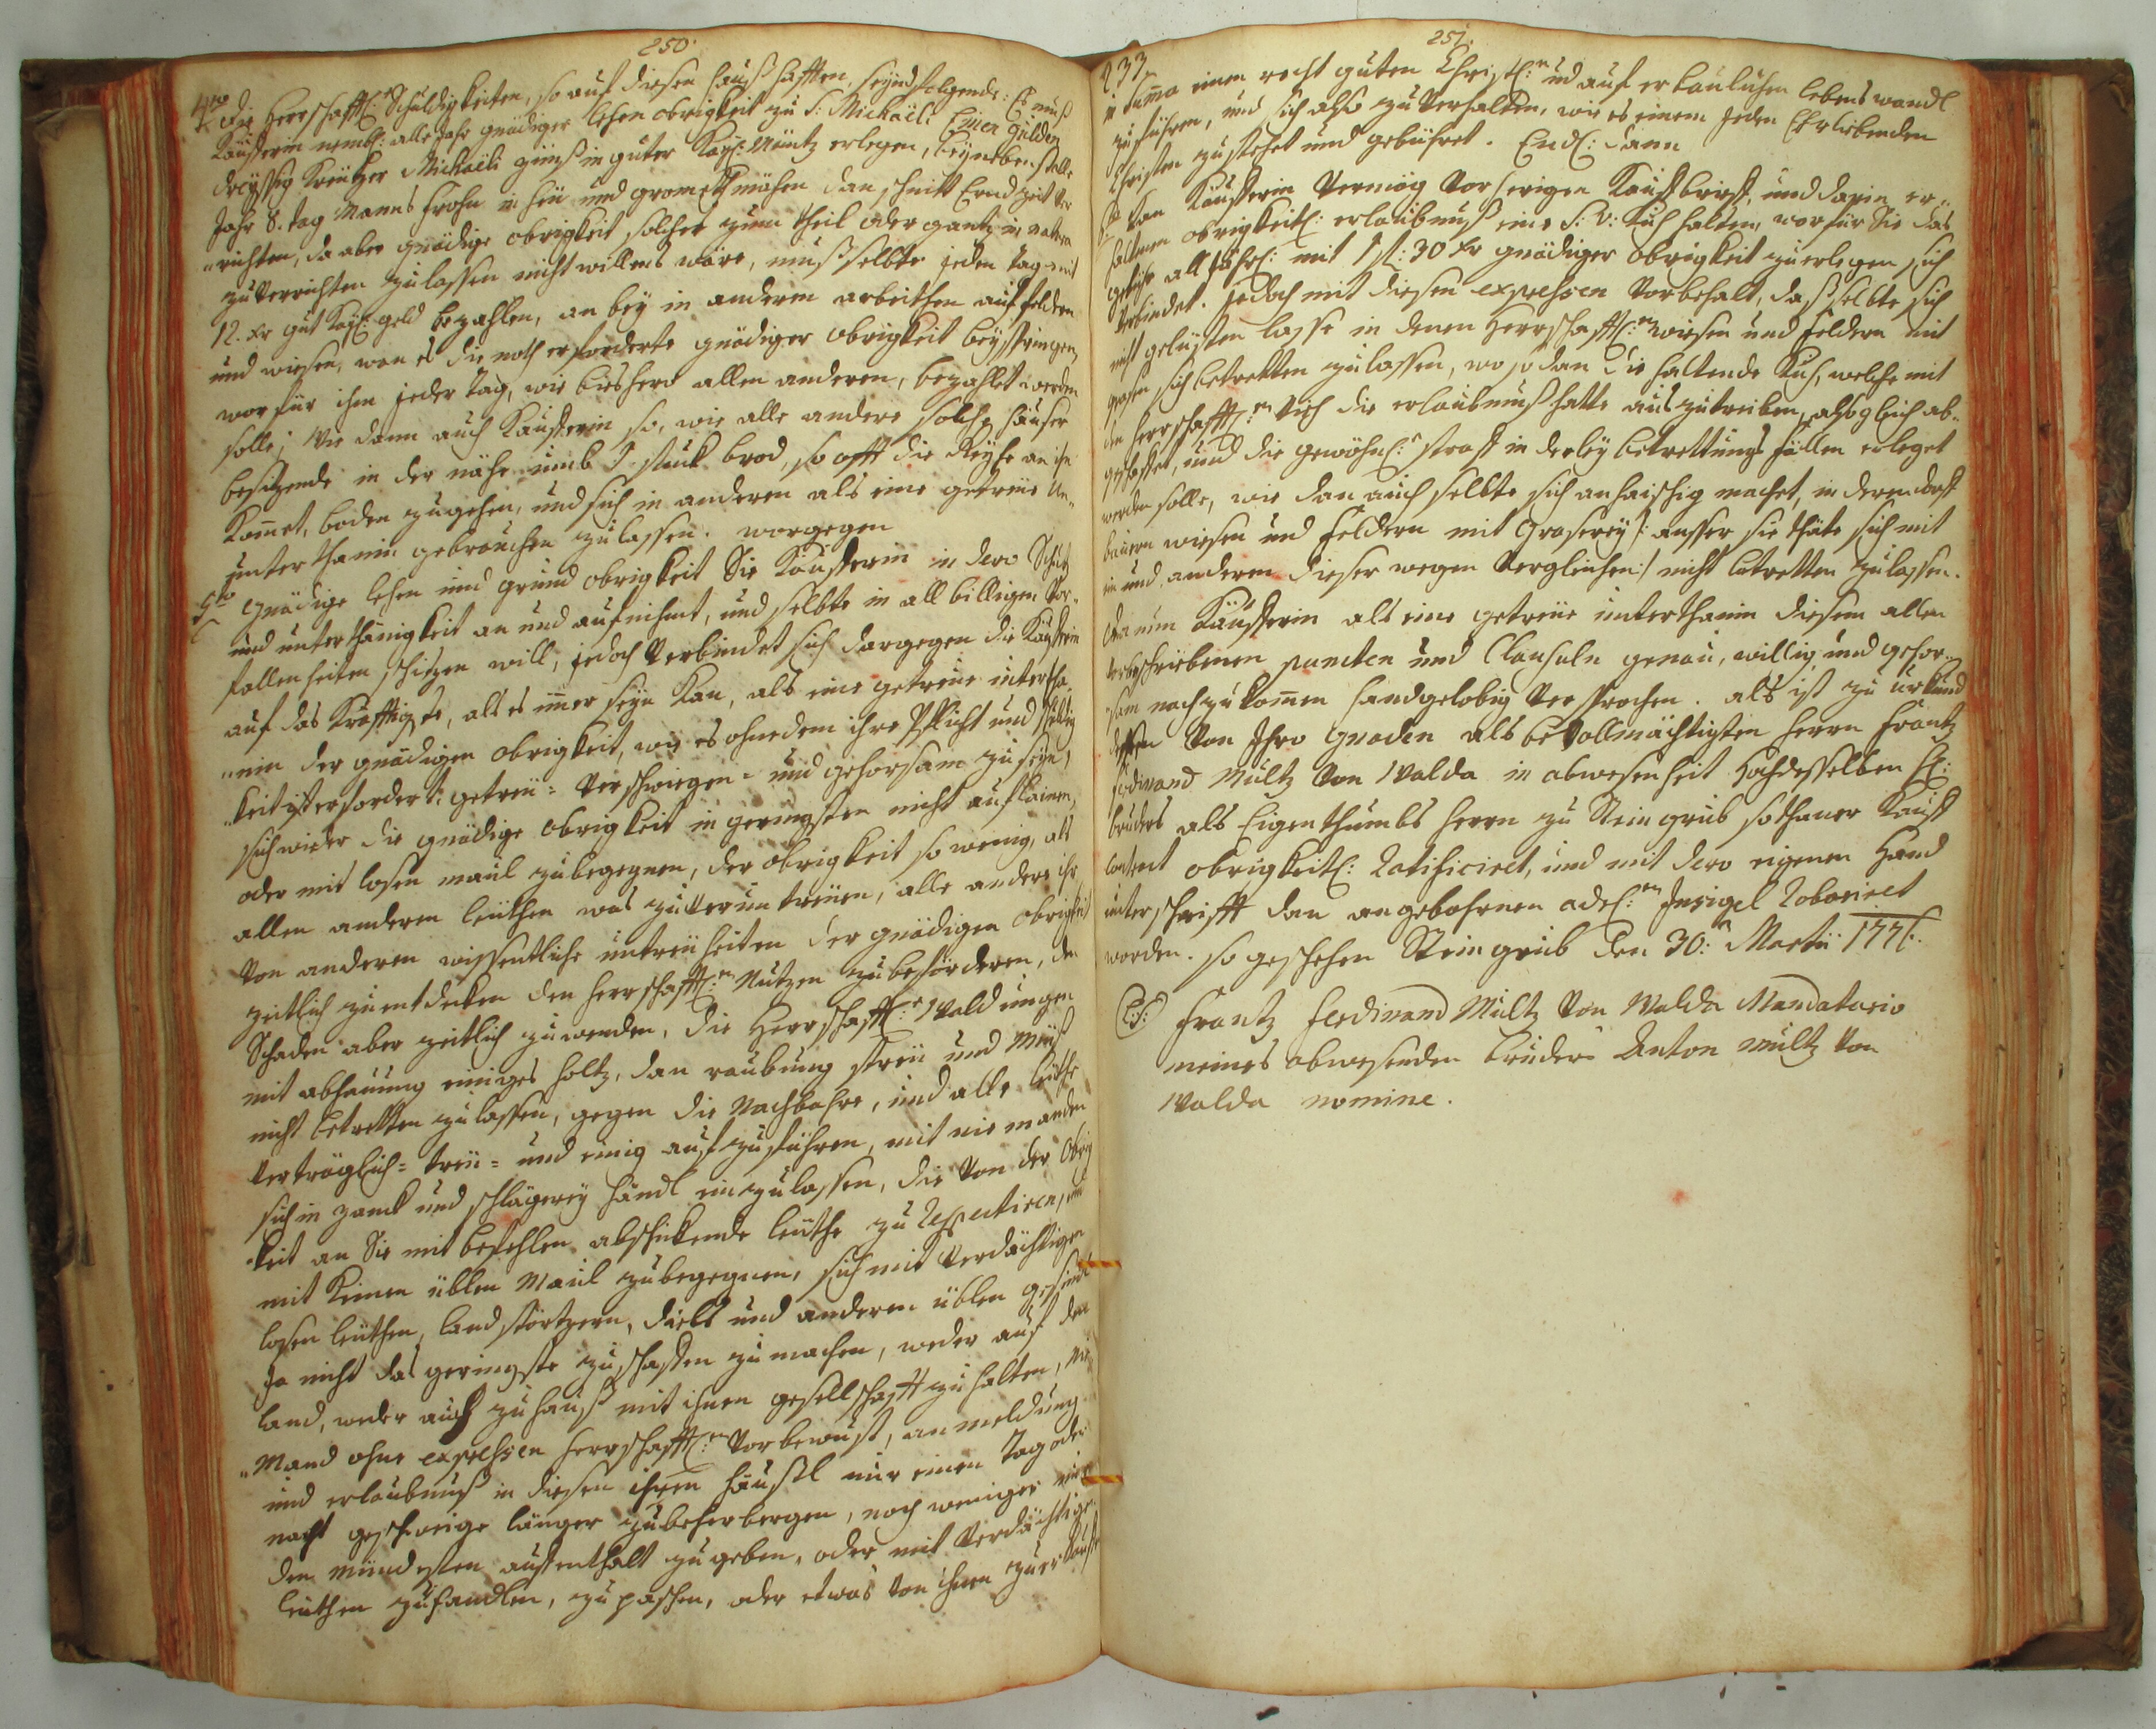 250
4to die Herrschafftl: Schuldigkeiten, so auf diesen Hauß hafften, seynd folgende: Es muß
Kaufferin nembl: alle Jahr gnädiger lehen obrigkeit zu S: Michaëli Einen Gulden
dreyssig Kreutzer Michaëli zünß in guter Kays: Müntz erlegen, beyneben stelle
Jahr 8. tag Manns frohn in heu und grometh mähen dan schnitt Ernd zeit ver
"richten, da aber gnädige obrigkeit solche zum theil oder gantz in natura
zu verrichten zu lassen nicht willens wäre, muß selbte jeden tag mit
12. xr gut Kays: geld bezahlen, an bey in anderen arbeithen auf felden
und wiesen, wan es die noth erforderte gnädiger obrigkeit beyspringen,
wor für ihm jeder tag, wie biesher allen anderen, bezahlet werden
solle; Wie dann auch Kaufferin so, wie alle andere solche häuser
besitzende in der nähe umb 1 stuck brod, so offt die Reyhe an ihr
Kommet, boden zu gehen, und sich in anderen als eine getreue un-
unterthanin gebrauchen zu lassen. worgegen
5to gnädige lehen und grund obrigkeit Sie Kaufferin in dero Schutz
und unterthänigkeit an und aufnihmt, und selbte in all billigen vor-
fallenheiten schützen will, jedoch verbindet sich dargegen die Kaufferin
auf das Kräfftigste, als es immer seyn kan, als eine getreue untertha-
"nin der gnädigen obrigkeit, wie es ohnedem ihre Pflicht und schuldig
"keit ist erfordert: getreu= verschwiegen= und gehorsam zu seyn,
sich wieder die gnädige obrigkeit in geringsten nicht auflainen,
oder mit losen maul zu begegnen, der obrigkeit so wenig, als
allen anderen leuthen was zu veruntreuen, alle andere ihr
von anderen wissentliche untreuheiten der gnädigen obrigkeit
zeitlich zu entdecken den herrschafftl:en Nutzen zu beförderen, den
Schaden aber zeitlich zu wenden, die Herrschafftl:e Waldungen
mit abhauung einiges holtz, dan raubung streu und Müß
nicht betretten zu lassen, gegen die Nachbahre, und alle leuthe
verträglich= treu= und einig aufzuführen, mit niemanden
sich in zanck und schlägerey händl einzulassen, die von der obrig
"keit an Sie mit befehlen abschickende leuthe zu Respectiren, und
mit Keinen üblen Maul zu begegnen, sich mit verdächtigen
losen leuthen, landstörtzern, dieb und anderen üblen gesindl
Ja nicht das geringste zu schaffen zu machen, weder auf den
land, weder auch zu hauß mit ihnen gesellschafft zu halten, Nie
"mand ohne expressen herrschafftl:en vorbewust, anmeldung
und erlaubnuß in diesen ihren häusl nur einen Tag oder
nacht geschweige länger zu beherbergen, noch weniger einen
den mindesten auffenthalt zu geben, oder mit verdächtigen
leuthen zu handlen, zu paschen, oder etwas von ihnen zu erkauffen
251.
233
in Summa einen recht guten Christl:en und auf erbaulichen lebens wandl
zu führen, und sich also zu verhalten, wie es einem jeden Ehrliebenden
Christen zustehet und gebühret. Endl: dann
kan Kaufferin vermög vorherigen Kauffbrief, und darin er-
haltenen obrigkeitl: erlaubnuß eine S: V: Kuh halten, worfür Sie das
alljährl: mit 1 fl: 30 xr gnädiger obrigkeit zu erlegen sich
verbindet. Jedoch mit diesen expressen vorbehalt, daß selbte sich
nicht gelusten lasse in denen Herrschafftl:en wiesen und feldern mit
grasen sich betretten zu lassen, wo sodan die haltende Kuh, welche mit
den herrschafftl:en Vieh die erlaubnuß hatte auszutreiben, alsogleich ab-
geschaffet, und die gewöhnl:e straff in derley betrettungs fällen erleget
werden solle, wie dan auch selbte sich anhaischig machet, in deren dorff
bauern wiesen und feldern mit Graserey /: ausser sie thäte sich mit
ein und anderen dieser wegen vergleichen:/ nicht betretten zu lassen.
Wan nun Kaufferin als eine getreue unterthanin diesem allen
vorbeschriebenen puncten und Clausuln genau, willig und gehor-
"sam nachzukommen handgelobig versprochen. als ist zu urkund
dessen von Ihro Gnaden als bevollmächtigten Herrn Frantz
Ferdinand Multz von Walda in abwesenheit Hochdesselben H:
bruders als Eigenthumbs Herrn zu Steingrub sothaner Kauff
Contract obrigkeitl: Ratificiret, und mit dero eigenen Hand
unterschrifft dan angebohrnen adel:en Insigel Roboriret
worden. So geschehen Steingrub den 30: Martii 1776.
(L:S:) Frantz Ferdinand Multz von Walda Mandatario
meines abwesenden bruders Anton Multz von
Walda nomine.